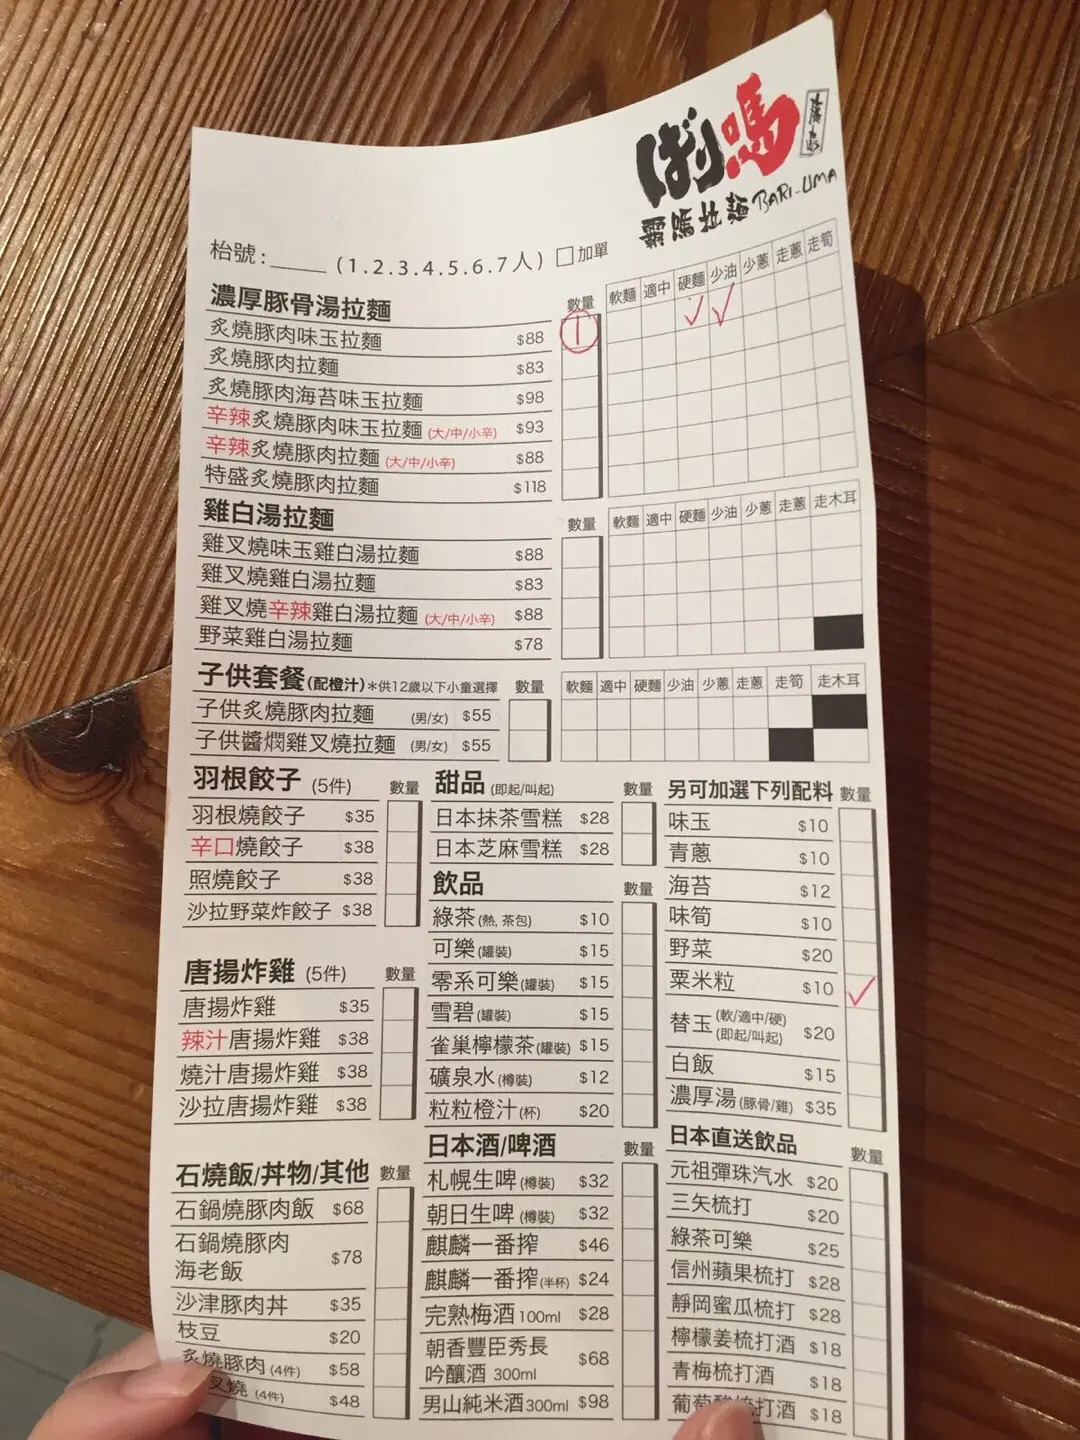 ばり嗎
覇嗎拉麵 BARI-UMA
枱號:_____ (1.2.3.4.5.6.7人) □加單
濃厚豚骨湯拉麵 數量 軟麵 適中 硬麵 少油 少蔥 走蔥 走筍
炙燒豚肉味玉拉麵 $88 1 ✓ ✓
炙燒豚肉拉麵 $83
炙燒豚肉海苔味玉拉麵 $98
辛辣炙燒豚肉味玉拉麵 (大/中/小辛) $93
辛辣炙燒豚肉拉麵 (大/中/小辛) $88
特盛炙燒豚肉拉麵 $118
雞白湯拉麵 數量 軟麵 適中 硬麵 少油 少蔥 走蔥 走木耳
雞叉燒味玉雞白湯拉麵 $88
雞叉燒雞白湯拉麵 $83
雞叉燒辛辣雞白湯拉麵 (大/中/小辛) $88
野菜雞白湯拉麵 $78
子供套餐(配橙汁) *供12歲以下小童選擇 數量 軟麵 適中 硬麵 少油 少蔥 走蔥 走筍 走木耳
子供炙燒豚肉拉麵 (男/女) $55
子供醬燜雞叉燒拉麵 (男/女) $55
羽根餃子 (5件) 數量
羽根燒餃子 $35
辛口燒餃子 $38
照燒餃子 $38
沙拉野菜炸餃子 $38
唐揚炸雞 (5件) 數量
唐揚炸雞 $35
辣汁唐揚炸雞 $38
燒汁唐揚炸雞 $38
沙拉唐揚炸雞 $38
石燒飯/丼物/其他 數量
石鍋燒豚肉飯 $68
石鍋燒豚肉
海老飯 $78
沙津豚肉丼 $35
枝豆 $20
炙燒豚肉 (4件) $58
叉燒 (4件) $48
甜品 (即起/叫起) 數量
日本抹茶雪糕 $28
日本芝麻雪糕 $28
飲品 數量
綠茶 (熱, 茶包) $10
可樂 (罐裝) $15
零系可樂 (罐裝) $15
雪碧 (罐裝) $15
雀巢檸檬茶 (罐裝) $15
礦泉水 (樽裝) $12
粒粒橙汁 (杯) $20
日本酒/啤酒 數量
札幌生啤 (樽裝) $32
朝日生啤 (樽裝) $32
麒麟一番搾 $46
麒麟一番搾 (半杯) $24
完熟梅酒 100ml $28
朝香豐臣秀長
吟釀酒 300ml $68
男山純米酒 300ml $98
另可加選下列配料 數量
味玉 $10
青蔥 $10
海苔 $12
味筍 $10
野菜 $20
粟米粒 $10 ✓
替玉 (軟/適中/硬) (即起/叫起) $20
白飯 $15
濃厚湯 (豚骨/雞) $35
日本直送飲品 數量
元祖彈珠汽水 $20
三矢梳打 $20
綠茶可樂 $25
信州蘋果梳打 $28
靜岡蜜瓜梳打 $28
檸檬姜梳打酒 $18
青梅梳打酒 $18
葡萄酸梳打酒 $18